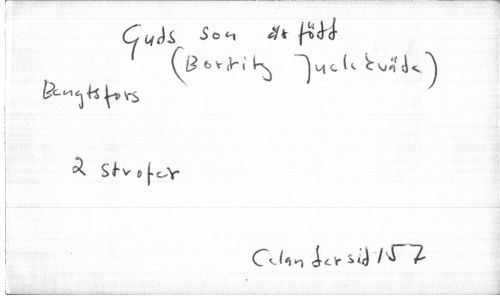 Guds son är född
(Borritz Juckkväde)
Bengtsfors
2 strofer
Celander sid 157